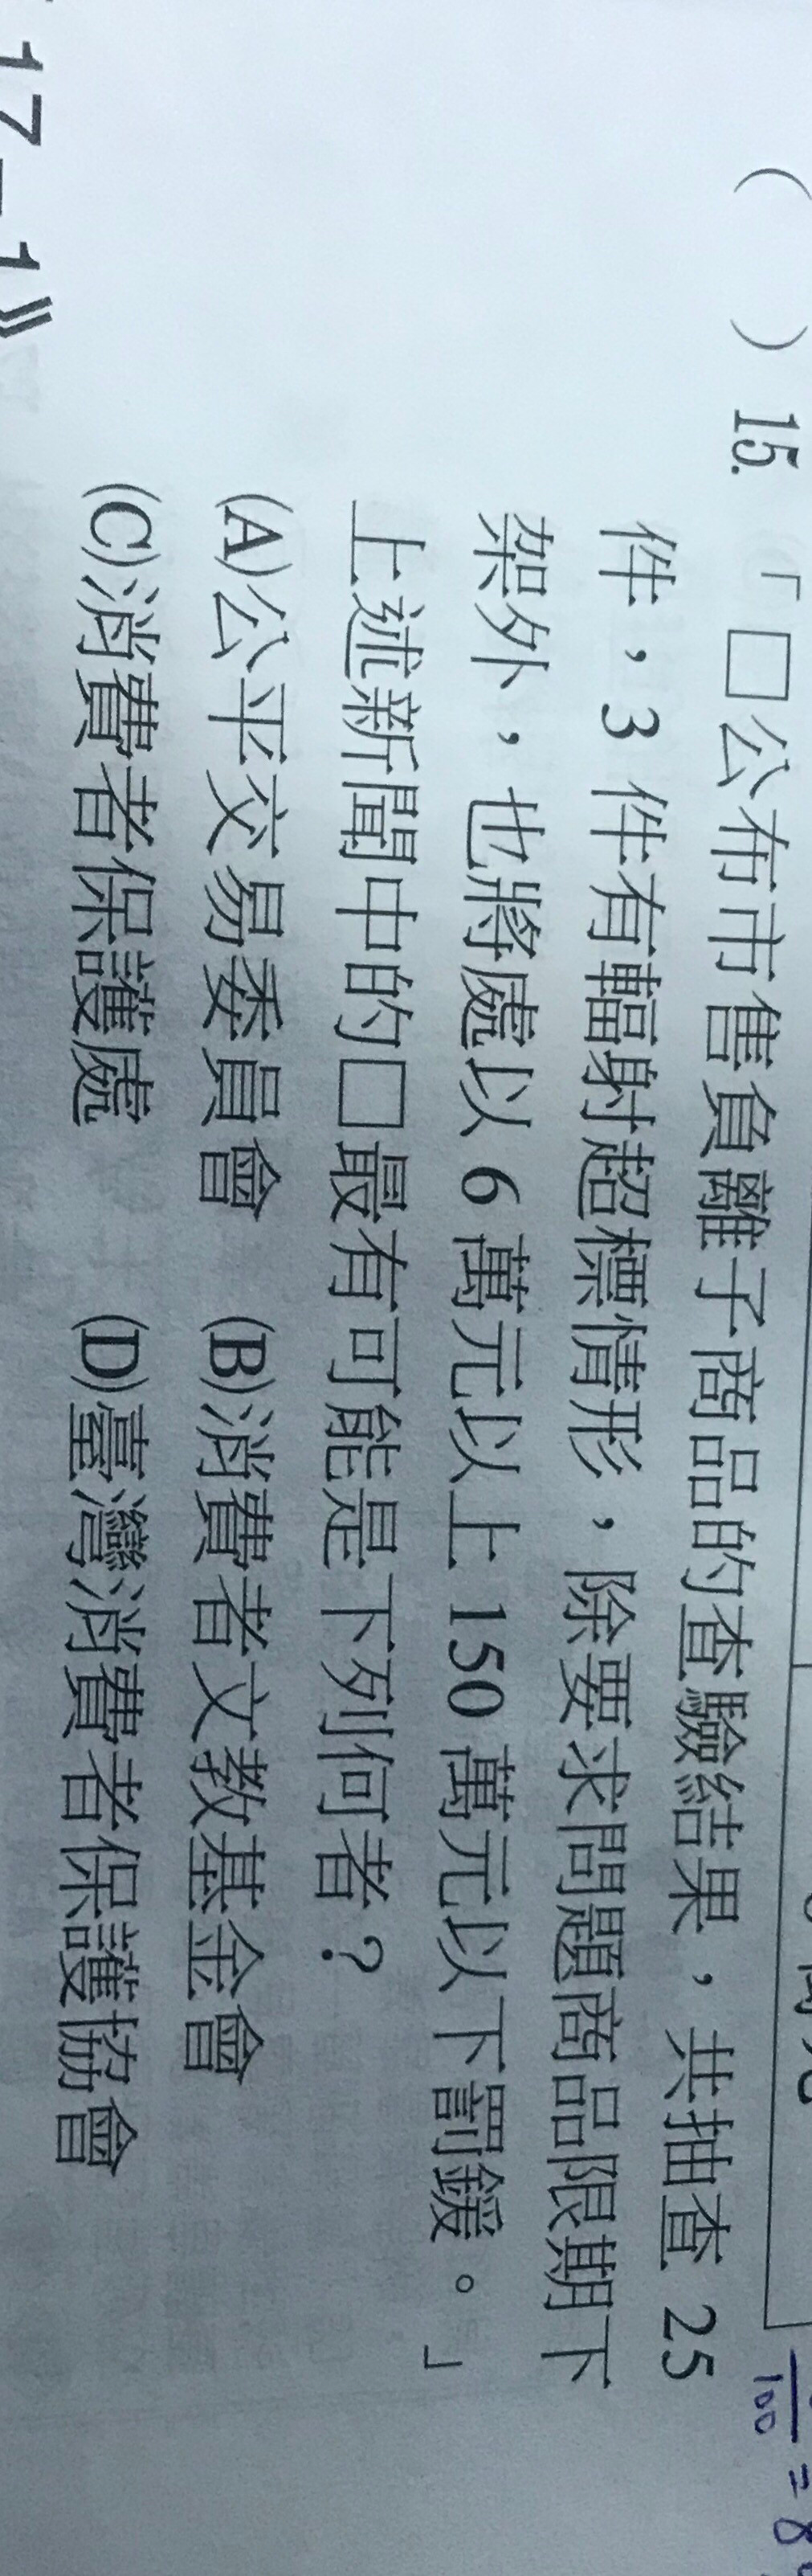 ( ) 15.「□公布市售負離子商品的查驗結果，共抽查 25
件，3 件有輻射超標情形，除要求問題商品限期下
架外，也將處以 6 萬元以上 150 萬元以下罰鍰。」
上述新聞中的□最有可能是下列何者？
(A)公平交易委員會 (B)消費者文教基金會
(C)消費者保護處 (D)臺灣消費者保護協會
17-1》
100 = 8